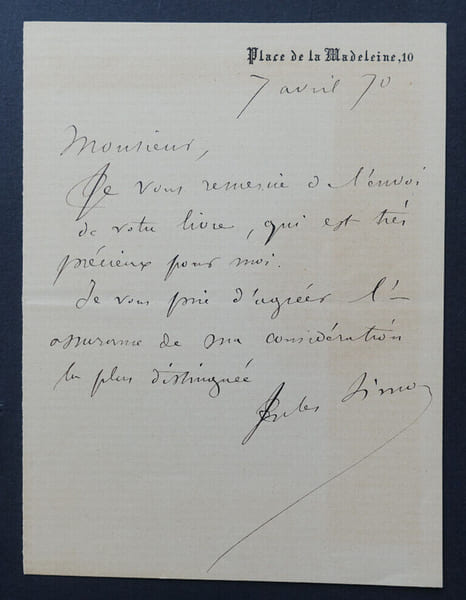 Place de la Madeleine, 10
7 avril 70
Monsieur,
Je vous remercie de l'envoi
de votre livre, qui est très
précieux pour moi.
Je vous prie d'agréer l'-
assurance de ma considération
la plus distinguée
Jules Simon